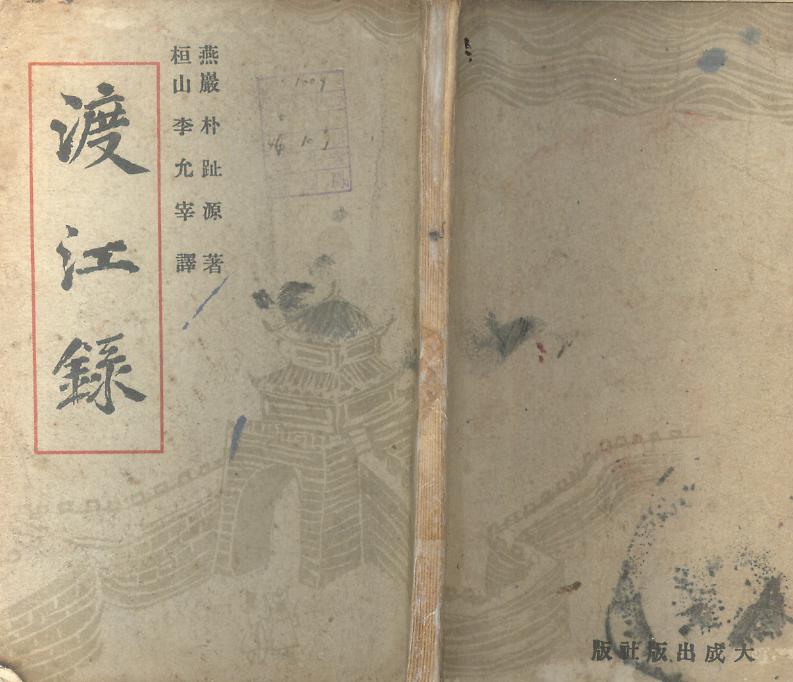 燕巖 朴趾源 著
桓山 李允宰 譯
渡江錄
大成出版社版